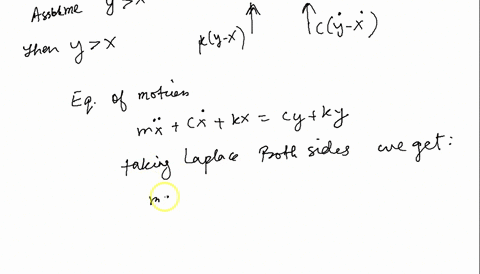 Assume ẏ>ẋ
then y>x
k(y-x)
c(ẏ-ẋ)
Eq. of motion
mẍ + cẋ + kx = cy + ky
taking Laplace Both sides we get:
m